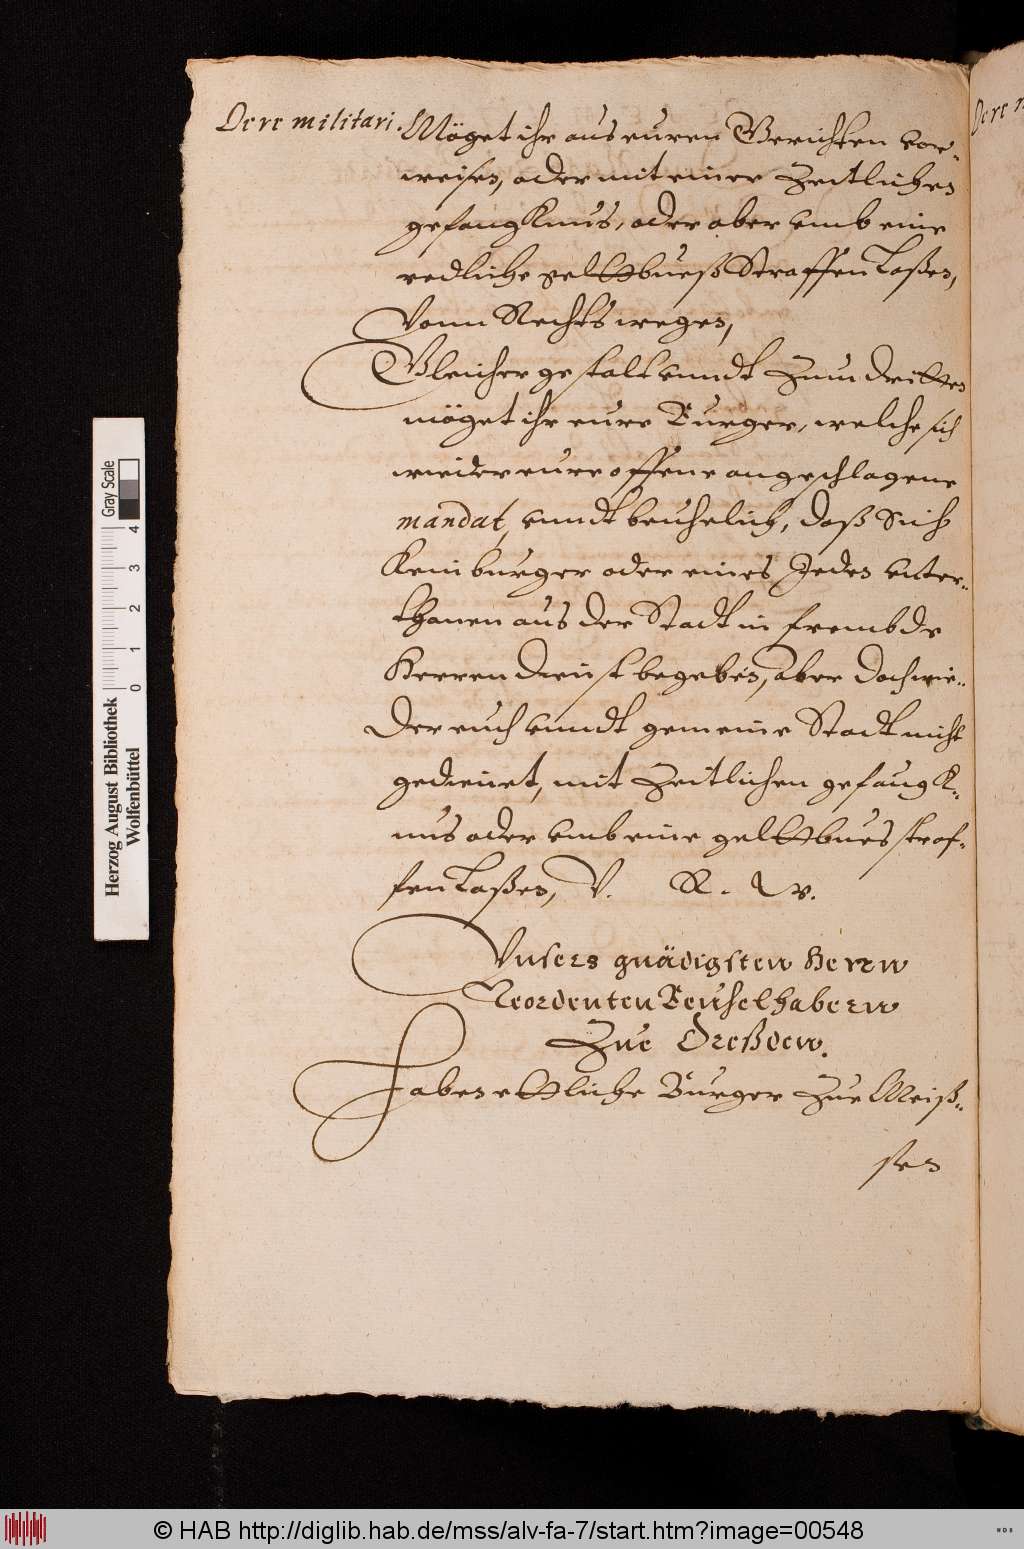 De re militari.
Möget ihr aus euren Gerichten vor-
weisen, oder mit einer Zeitlichen
gefangknus, oder aber umb eine
redliche geltbueß Straffen Laßen,
Vonn Rechts wegen,
Gleicher gestalt unndt Zum dritten
möget ihr eure Burger, welche sich
wieder eure offene angeschlagene
mandat, unndt beuhelich, daß Sich
Kein burger oder eines Jeden unter-
thanen aus der Stadt in frembde
Herren dienst begeben, aber doch wie-
der euch unndt gemeine Stadt nicht
gedienet, mit Zeitlichen gefangk-
nus oder umb eine geltbues straf-
fen Laßen, V. R. W.
Vnsers gnädigsten Herrn
Verordenten Beuhelhabern
Zue Dreßden.
Haben etliche Burger Zue Meiß-
sen
De re
Herzog August Bibliothek
Wolfenbüttel
0 1 2 3 4
Gray Scale
© HAB http://diglib.hab.de/mss/alv-fa-7/start.htm?image=00548